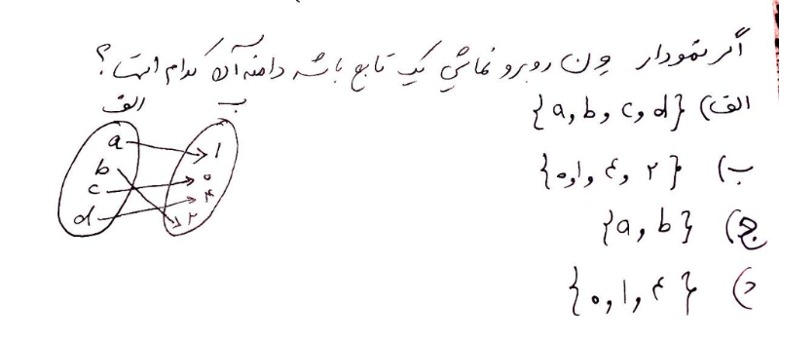 اگر نمودار ون روبرو نمایش یک تابع باشد دامنه آن کدام است؟
الف) {a, b, c, d}
ب) {۰, ۱, ۴, ۲}
ج) {a, b}
د) {۰, ۱, ۴}
الف ب
a ۱
b ۰
c ۴
d ۲